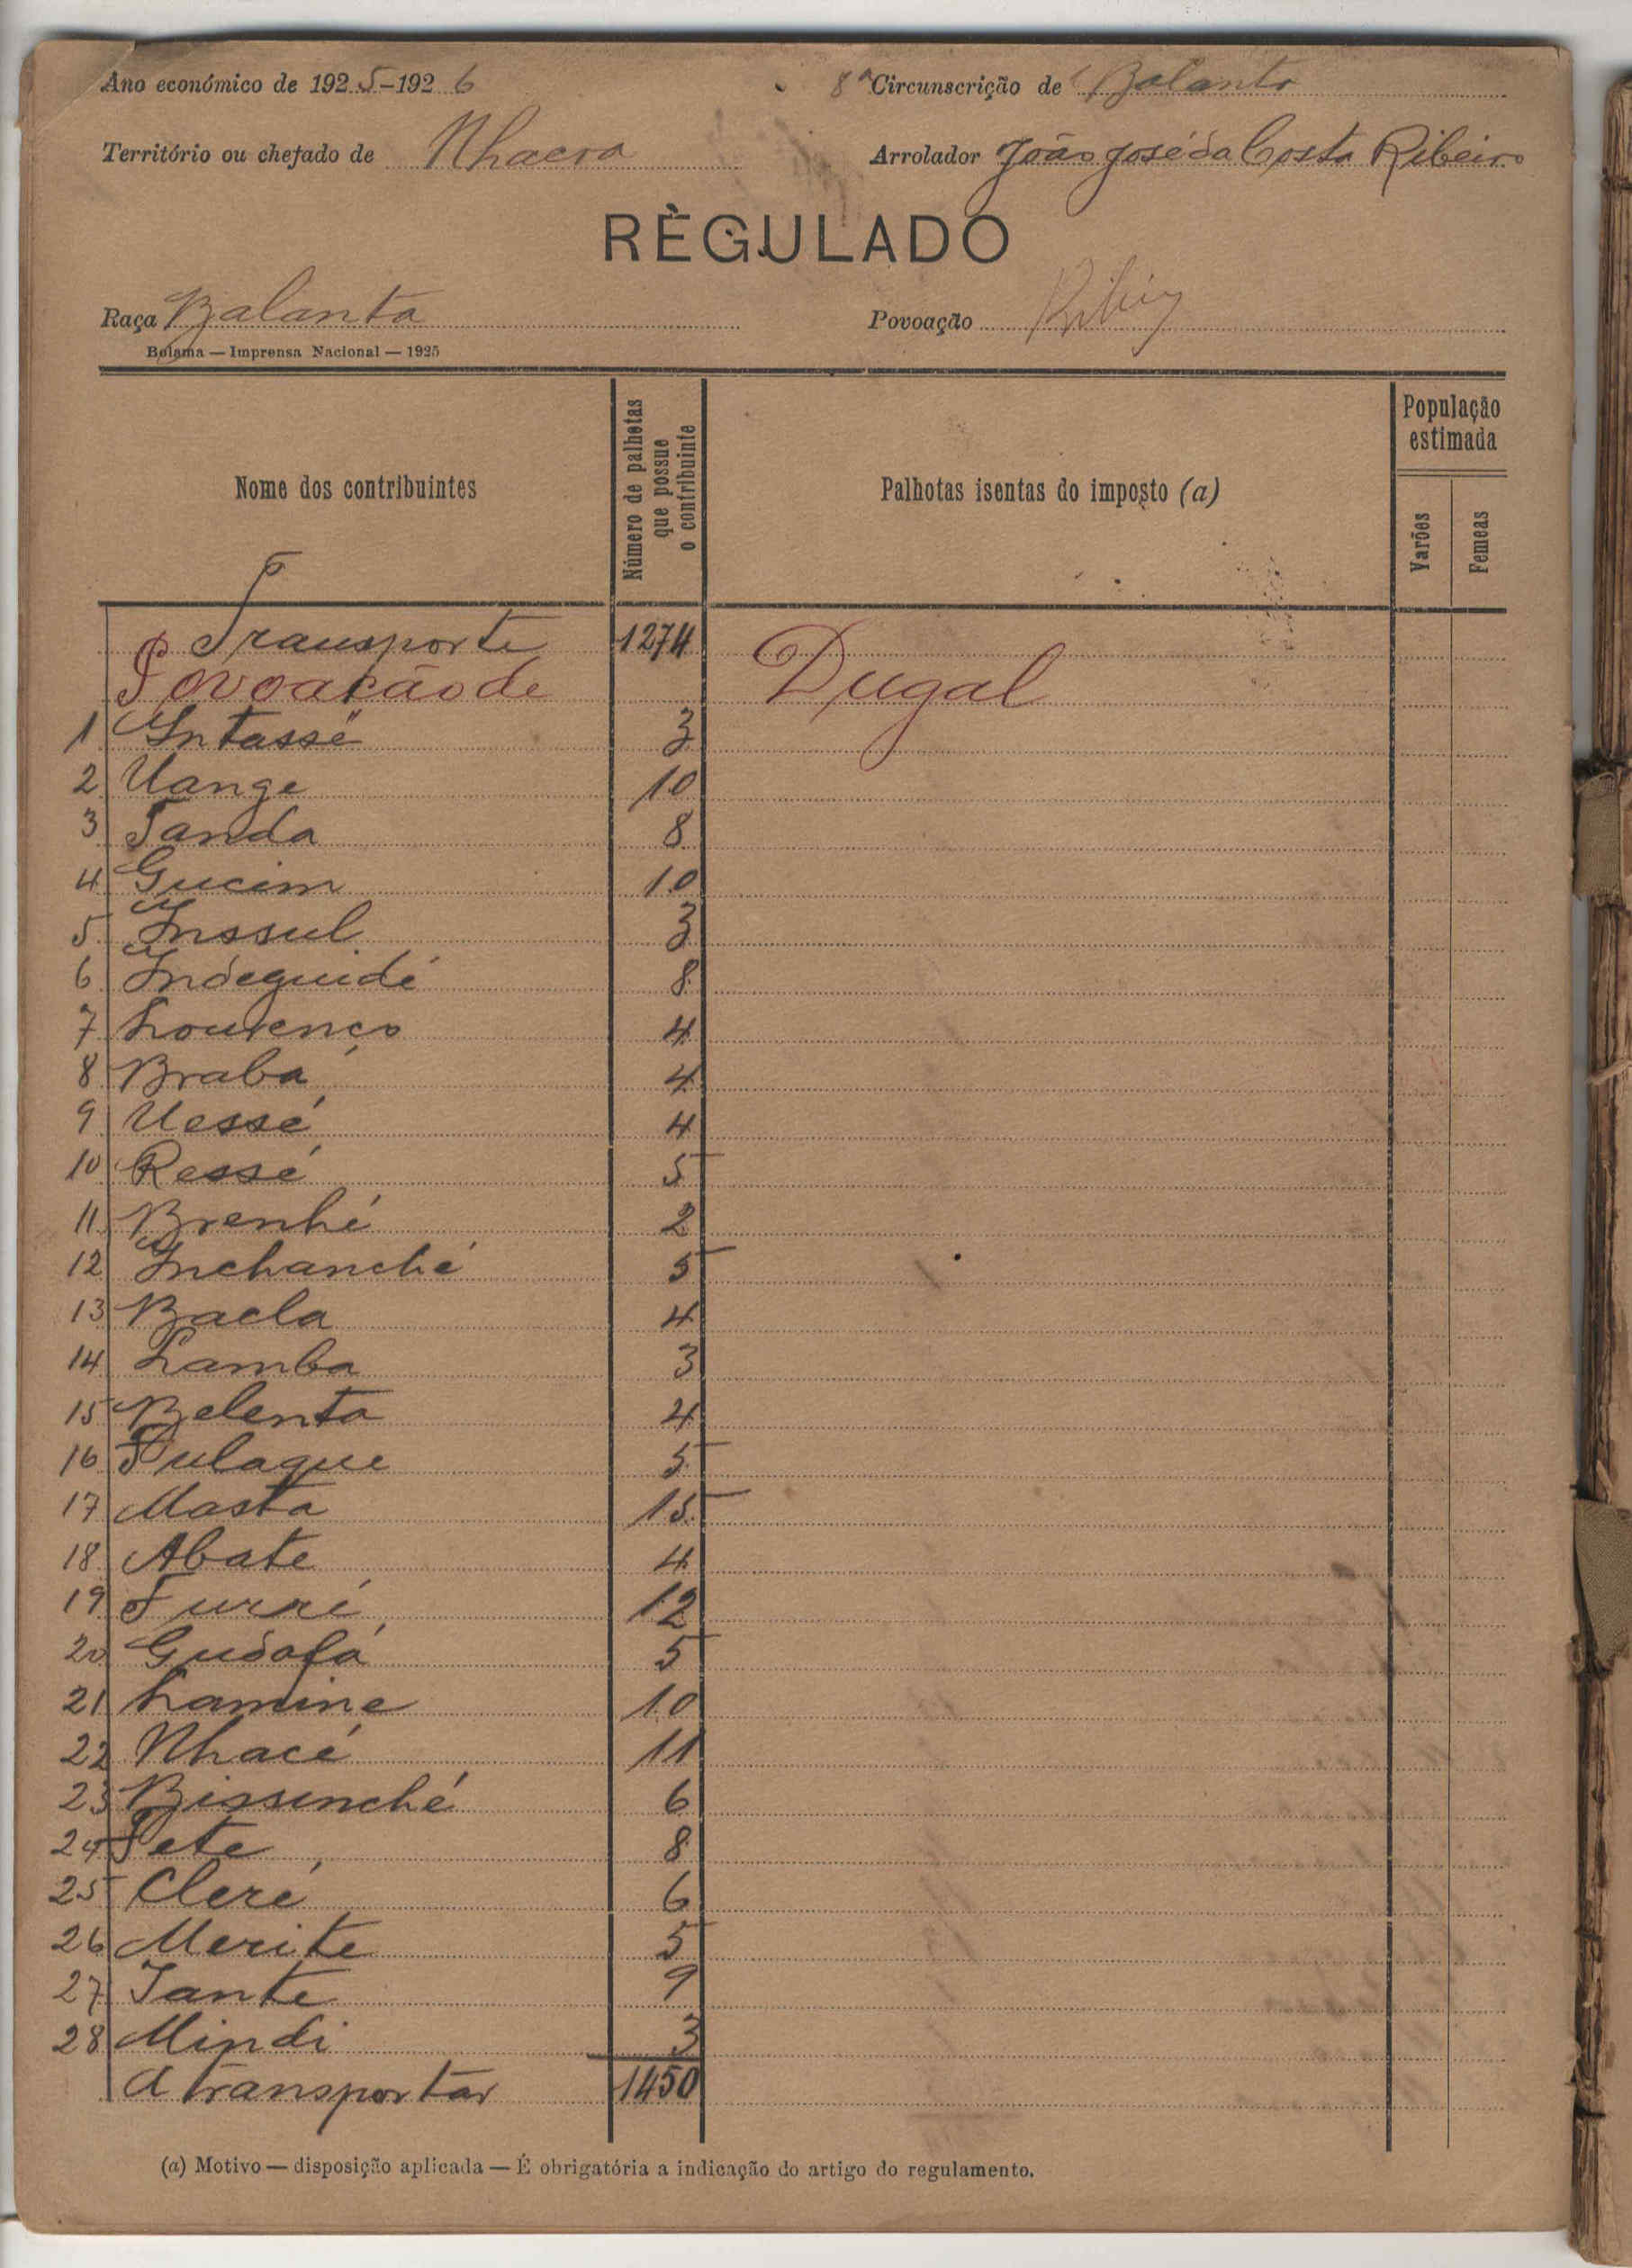 Ano económico de 1925-1926
8ª Circunscrição de Balanta
Território ou chefado de Nhacra
Arrolador João José da Costa Ribeiro
RÈGULADO
Raça Balanta
Povoação
Bolama — Imprensa Nacional — 1925
Nome dos contribuintes
Número de palhotas que possue o contribuinte
Palhotas isentas do imposto (a)
População estimada
Varões
Femeas
Transporte 1274
Povoacão de Dugal
1 Intassé 3
2 Uange 10
3 Tanda 8
4 Gucim 10
5 Inssul 3
6 Indeguidé 8
7 Lourenço 4
8 Brabá 4
9 Uessé 4
10 Ressé 5
11 Brenhé 2
12 Inchanché 5
13 Bacla 4
14 Lamba 3
15 Belenta 4
16 Pulaque 5
17 Masta 15
18 Abate 4
19 Furné 12
20 Gudafá 5
21 Lamine 10
22 Nhacé 11
23 Bissinché 6
24 Pete 8
25 Cleré 6
26 Merite 5
27 Tante 9
28 Mindi 3
A transportar 1450
(a) Motivo — disposição aplicada — É obrigatória a indicação do artigo do regulamento.